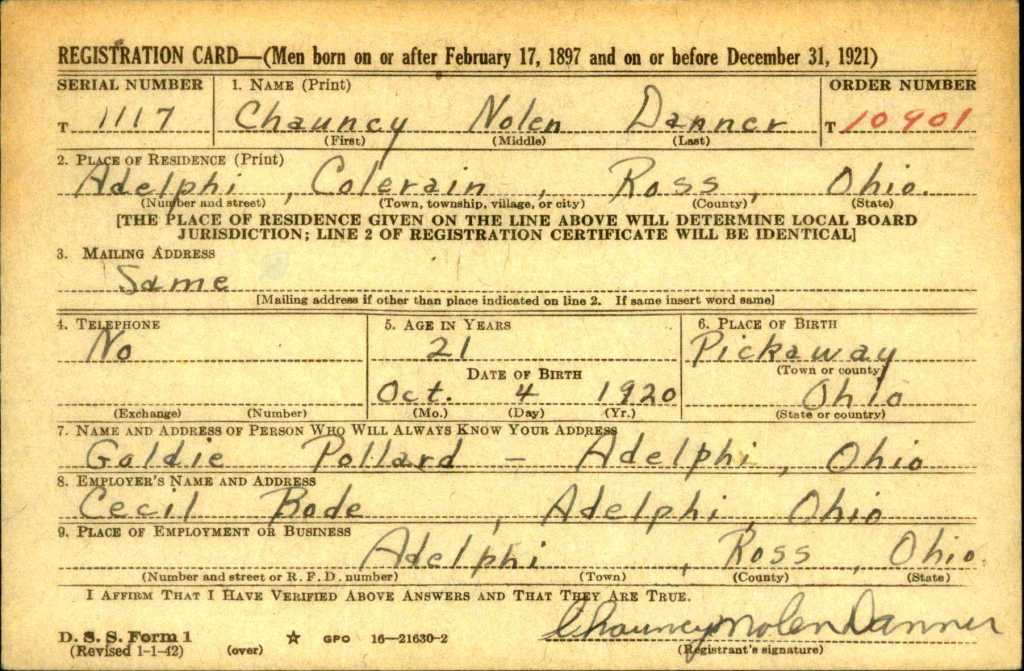 REGISTRATION CARD—(Men born on or after February 17, 1897 and on or before December 31, 1921)
SERIAL NUMBER 1. NAME (Print) ORDER NUMBER
T 1117 Chauncy Nolen Danner T 10901
(First) (Middle) (Last)
2. PLACE OF RESIDENCE (Print)
Adelphi , Colerain , Ross , Ohio.
(Number and street) (Town, township, village, or city) (County) (State)
[THE PLACE OF RESIDENCE GIVEN ON THE LINE ABOVE WILL DETERMINE LOCAL BOARD
JURISDICTION; LINE 2 OF REGISTRATION CERTIFICATE WILL BE IDENTICAL]
3. MAILING ADDRESS
Same
[Mailing address if other than place indicated on line 2. If same insert word same]
4. TELEPHONE 5. AGE IN YEARS 6. PLACE OF BIRTH
No 21 Pickaway
DATE OF BIRTH (Town or county)
Oct. 4 1920 Ohio
(Exchange) (Number) (Mo.) (Day) (Yr.) (State or country)
7. NAME AND ADDRESS OF PERSON WHO WILL ALWAYS KNOW YOUR ADDRESS
Goldie Pollard – Adelphi, Ohio
8. EMPLOYER'S NAME AND ADDRESS
Cecil Bode , Adelphi, Ohio
9. PLACE OF EMPLOYMENT OR BUSINESS
Adelphi , Ross, Ohio.
(Number and street or R. F. D. number) (Town) (County) (State)
I AFFIRM THAT I HAVE VERIFIED ABOVE ANSWERS AND THAT THEY ARE TRUE.
D. S. S. Form 1 GPO 16—21630-2 Chauncy Nolen Danner
(Revised 1-1-42) (over) (Registrant's signature)